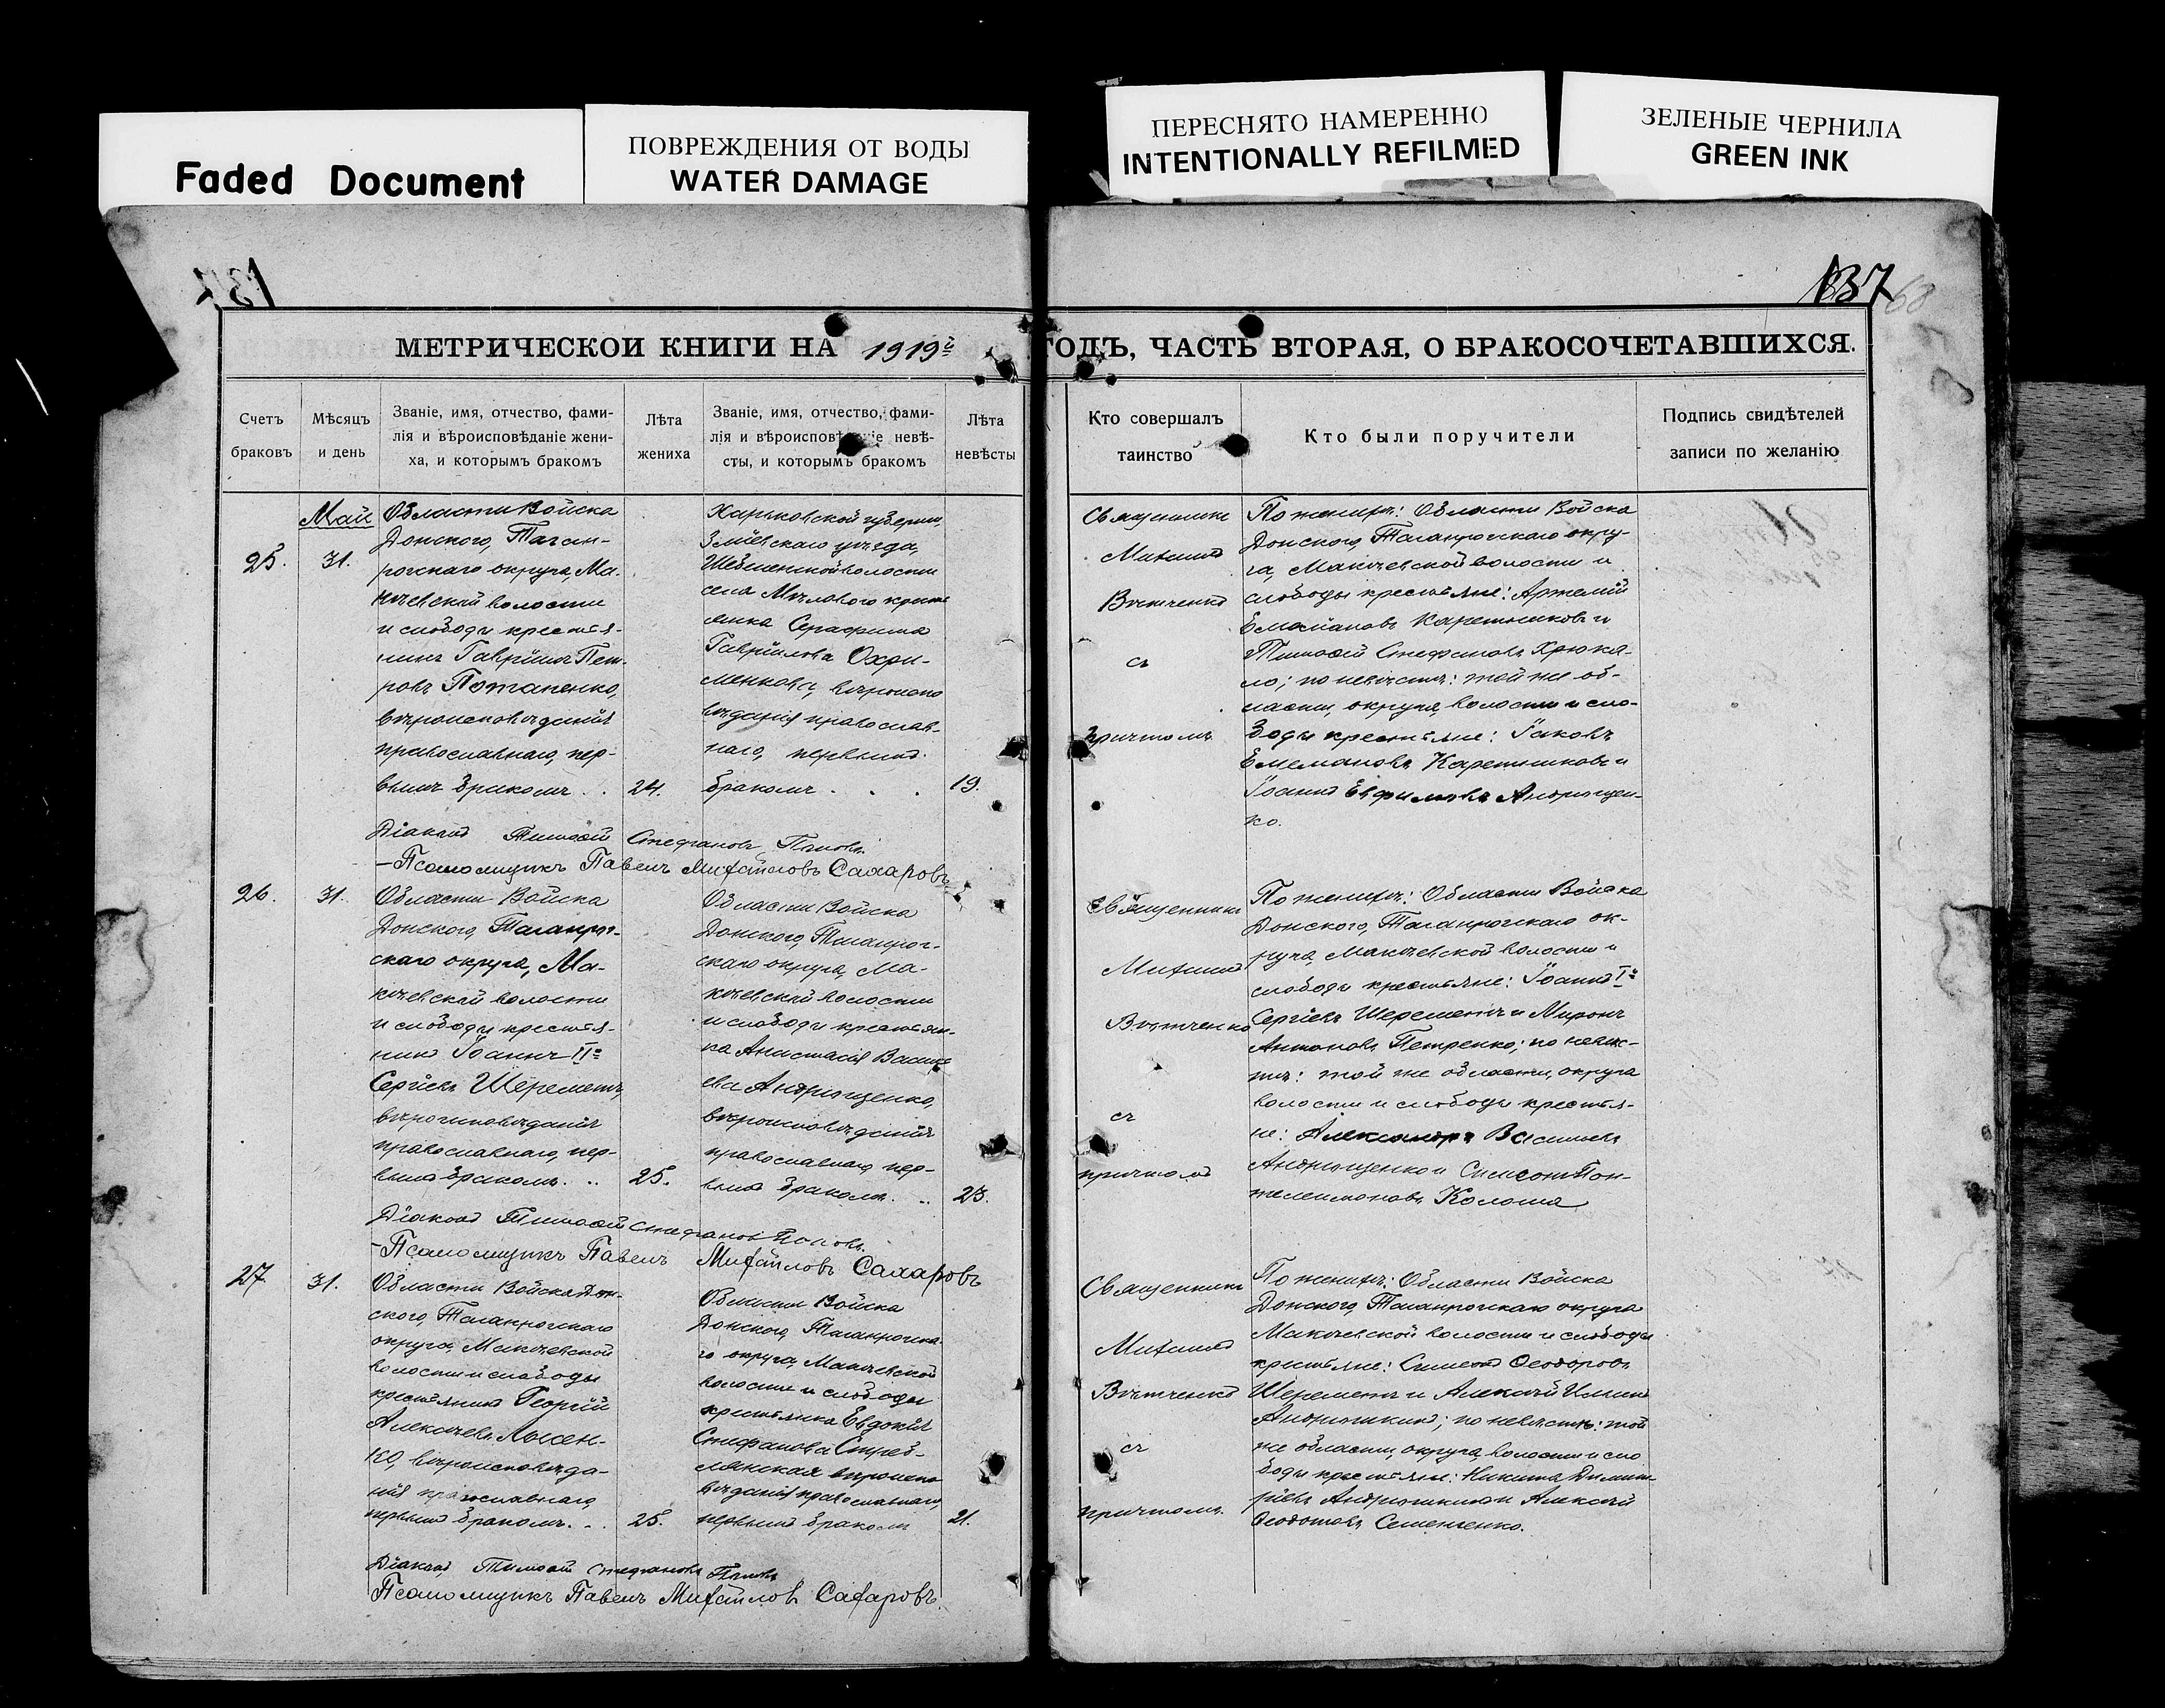 Faded Document
ПОВРЕЖДЕНИЯ ОТ ВОДЫ
WATER DAMAGE
ПЕРЕСНЯТО НАМЕРЕННО
INTENTIONALLY REFILMED
ЗЕЛЕНЫЕ ЧЕРНИЛА
GREEN INK
137
68
МЕТРИЧЕСКОЙ КНИГИ НА 1919й ГОДЪ, ЧАСТЬ ВТОРАЯ, О БРАКОСОЧЕТАВШИХСЯ.
Счетъ
браковъ
Мѣсяцъ
и день
Званіе, имя, отчество, фами-
лія и вѣроисповѣданіе жени-
ха, и которымъ бракомъ
Лѣта
жениха
Званіе, имя, отчество, фами-
лія и вѣроисповѣданіе невѣ-
сты, и которымъ бракомъ
Лѣта
невѣсты
Кто совершалъ
таинство
Кто были поручители
Подпись свидѣтелей
записи по желанію
25.
Май
31.
Области Войска
Донского, Таган-
рогскаго округа, Ма-
кѣевской волости
и слободы крестья-
нинъ Гавріилъ Пет-
ровъ Потапенко,
вѣроисповѣданія
православнаго, пер-
вымъ бракомъ . .
24.
Харьковской губерніи,
Зміевскаго уѣзда,
волости
села Мѣловаго кресть
янка Серафима
Гавріилова Охри-
менкова, вѣроиспо
вѣданія православ-
наго, первымъ
бракомъ . . .
19.
Священникъ
Михаилъ
Вѣтченко
съ
причтомъ
По женихѣ: Области Войска
Донского, Таганрогскаго окру-
га, Макѣевской волости и
слободы крестьяне: Артемій
Емеліановъ Каретниковъ и
Тимоѳей Стефановъ Хрюка-
ло; по невѣстѣ: той же об-
ласти, округа, волости и сло-
боды крестьяне: Іаковъ
Емеліановъ Каретниковъ и
Іоаннъ Евфимовъ Андрющен-
ко.
Діаконъ Тимоѳей Стефановъ Поповъ.
—Псаломщикъ Павелъ Михайловъ Сахаровъ
26.
31.
Области Войска
Донского, Таганрог-
скаго округа, Ма-
кѣевской волости
и слободы крестья-
нинъ Іоаннъ IIй
Сергіевъ Шереметъ,
вѣроисповѣданія
православнаго, пер-
вымъ бракомъ. ..
25.
Области Войска
Донского, Таганрог-
скаго округа, Ма-
кѣевской волости
и слободы крестьян-
ка Анастасія Василь
ева Андрющенко,
вѣроисповѣданія
православнаго, пер-
вымъ бракомъ. ..
23.
Священникъ
Михаилъ
Вѣтченко
съ
причтомъ
По женихѣ: Области Войска
Донского, Таганрогскаго ок-
руга, Макѣевской волости и
слободы крестьяне: Іоаннъ Iй
Сергіевъ Шереметъ и Миронъ
Антоновъ Петренко; по невѣс-
тѣ: той же области, округа
волости и слободы крестья-
не: Александръ Васильевъ
Андрющенко и Симеонъ Пан-
телеимоновъ Колоша
Діаконъ Тимоѳей Стефановъ Поповъ.
—Псаломщикъ Павелъ Михайловъ Сахаровъ
27.
31.
Области Войска Дон-
ского, Таганрогскаго
округа, Макѣевской
волости и слободы
крестьянинъ Георгій
Алексѣевъ Лысен-
ко, вѣроисповѣда-
нія православнаго,
первымъ бракомъ. ..
25.
Области Войска
Донского, Таганрогска-
го округа, Макѣевской
волости и слободы
крестьянка Евдокія
Стефанова Стреб-
лянская вѣроиспо
вѣданія православнаго,
первымъ бракомъ
21.
Священникъ
Михаилъ
Вѣтченко
съ
причтомъ.
По женихѣ: Области Войска
Донского, Таганрогскаго округа
Макѣевской волости и слободы
крестьяне: Симеонъ Ѳеодоровъ
Шереметъ и Алексѣй Ильинъ
Андрюшкинъ; по невѣстѣ: той
же области, округа, волости и сло
боды крестьяне: Никита Димит-
ріевъ Андрюшкинъ и Алексѣй
Ѳеодотовъ Семенченко.
Діаконъ Тимоѳей Стефановъ Поповъ
Псаломщикъ Павелъ Михайловъ Сахаровъ.